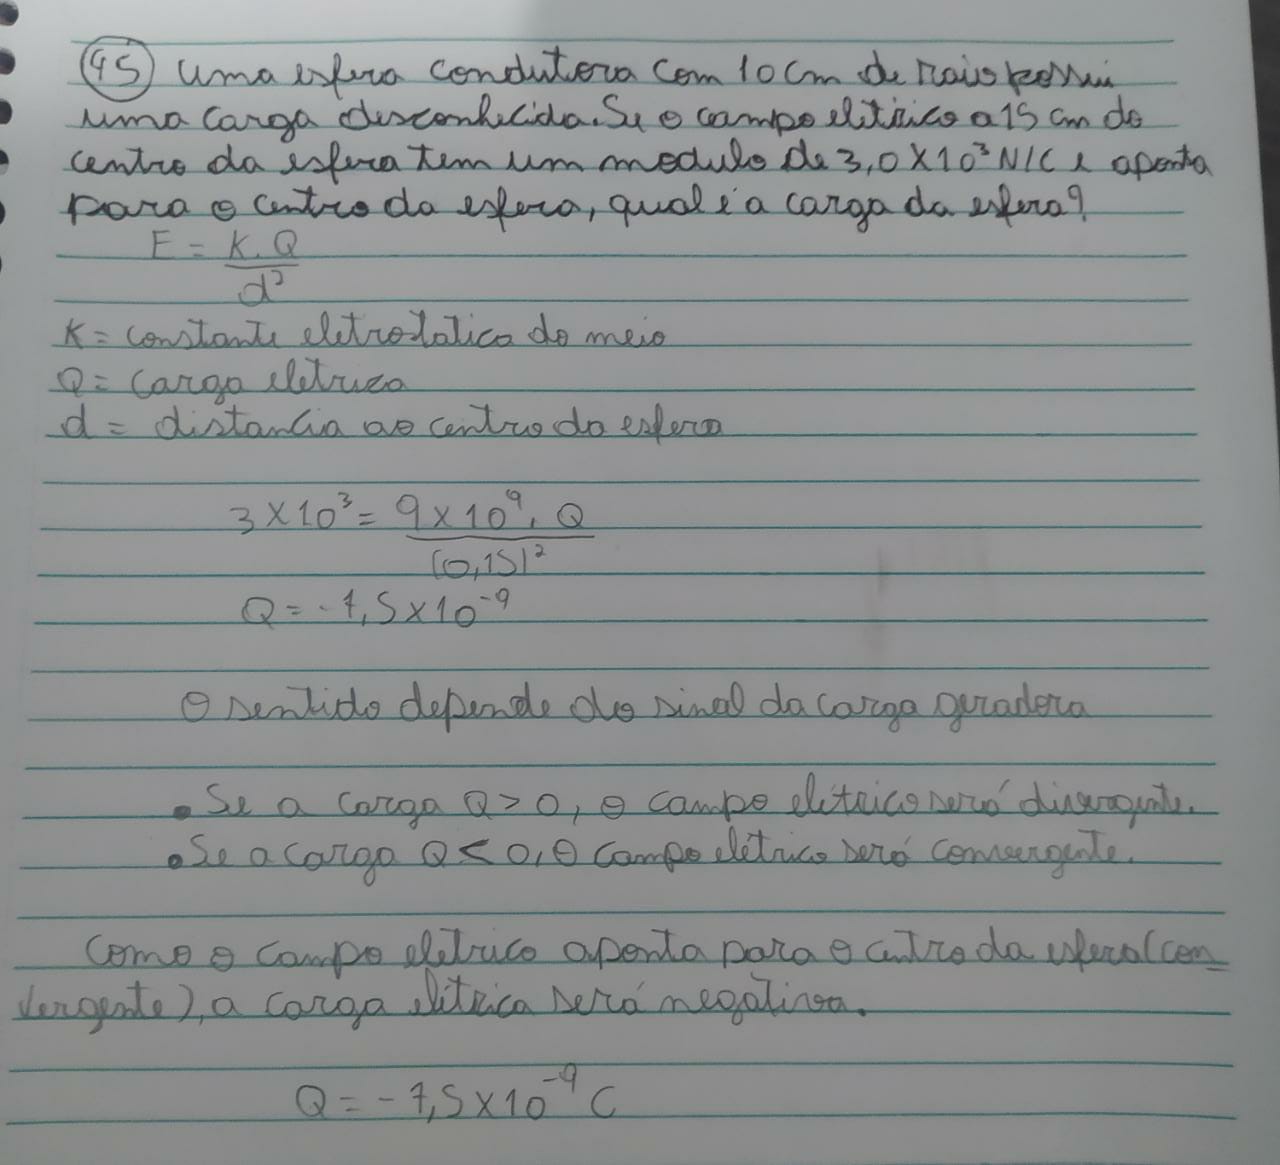 45 Uma esfera condutora com 10 cm de raio possui
uma carga desconhecida. Se o campo elétrico a 15 cm do
centro da esfera tem um modulo de 3,0 X 10³ N/C e aponta
para o centro da esfera, qual é a carga da esfera?
E = K.Q / d²
K = constante eletrostatica do meio
Q = carga eletrica
d = distancia ao centro da esfera
3 X 10³ = 9 x 10⁹ . Q / (0,15)²
Q = -7,5 x 10⁻⁹
O sentido depende do sinal da carga geradora
• Se a carga Q > 0, o campo elétrico será divergente.
• Se a carga Q < 0, o campo elétrico será convergente.
Como o campo eletrico aponta para o centro da esfera (con-
vergente), a carga elétrica será negativa.
Q = -7,5 X 10⁻⁹ C